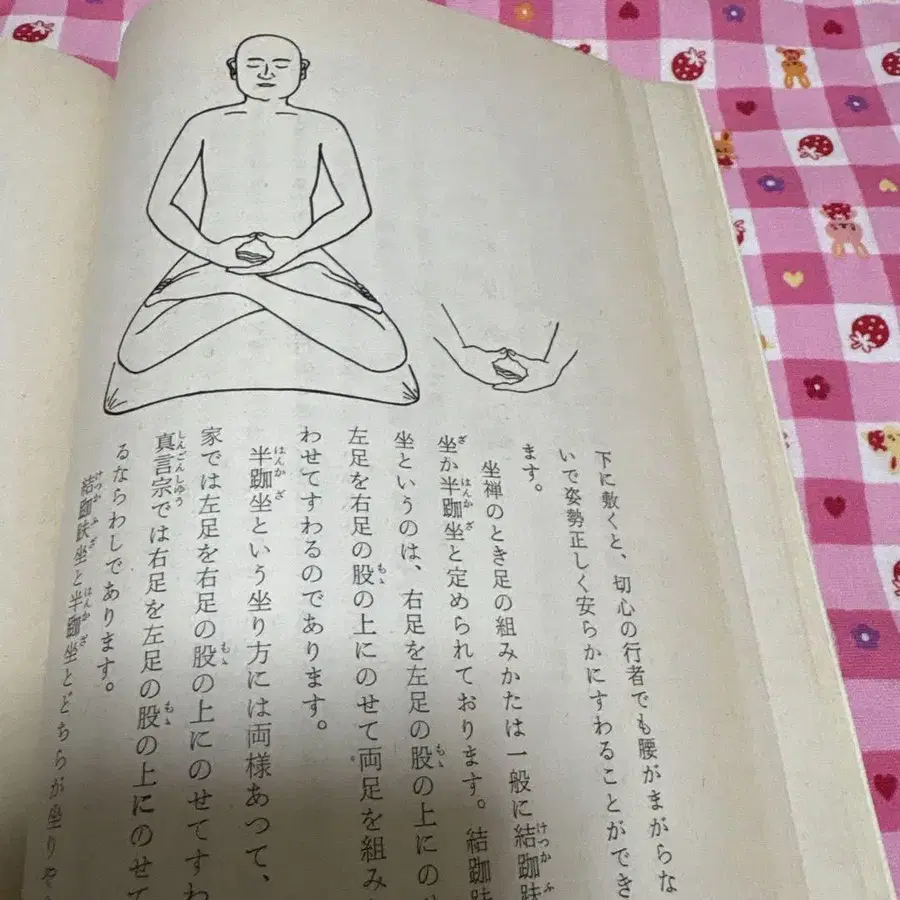 下に敷くと、切心の行者でも腰がまがらな
いで姿勢正しく安らかにすわることができ
ます。
坐禅のとき足の組みかたは一般に結跏趺
坐か半跏坐と定められております。結跏趺
坐というのは、右足を左足の股の上にの
左足を右足の股の上にのせて両足を組み
わせてすわるのであります。
半跏坐という坐り方には両様あつて、
家では左足を右足の股の上にのせてすわ
真言宗では右足を左足の股の上にのせて
るならわしであります。
結跏趺坐と半跏坐とどちらが座りや